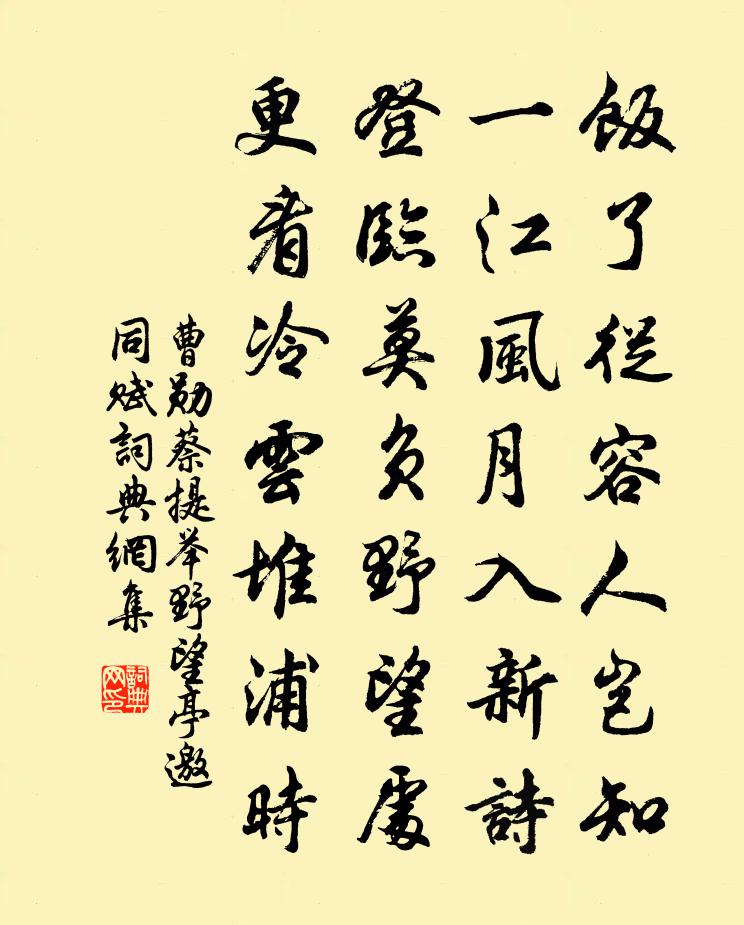 飯了從容人岂知
一江風月入新詩
登臨莫负野望處
更看冷雲堆浦時
曹勛蔡提举野望亭邀
同赋詞典網集
詞典
网印